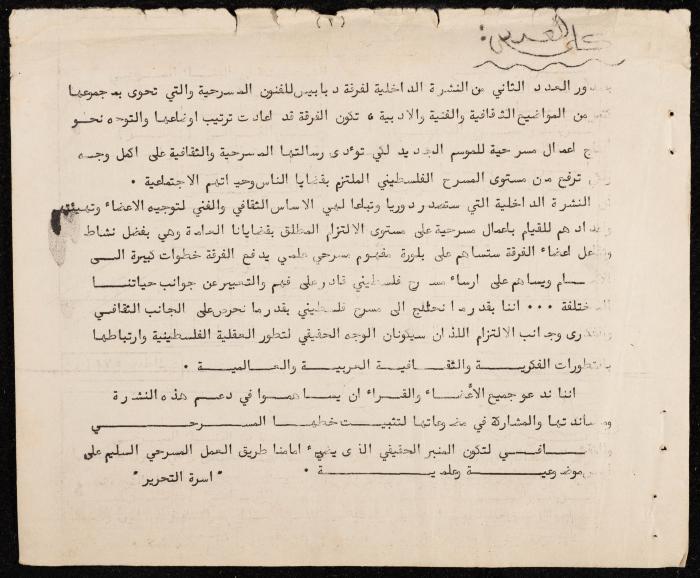 (٢)
كلمة العدد :
بصدور العدد الثاني من النشرة الداخلية لفرقة دبابيس للفنون المسرحية والتي تحوى بمجموعها
من المواضيع الثقافية والفنية والادبية ، تكون الفرقة قد اعادت ترتيب اوضاعها والتوجه نحو
اعمال مسرحية للموسم الجديد لكي تؤدى رسالتها المسرحية والثقافية على اكمل وجه
ترفع من مستوى المسرح الفلسطيني الملتزم بقضايا الناس وحياتهم الاجتماعية .
النشرة الداخلية التي ستصدر دوريا وتباعا لهي الاساس الثقافي والفني لتوجيه الاعضاء وتهيئتهم
للقيام باعمال مسرحية على مستوى الالتزام المطلق بقضايانا العامة وهي بفضل نشاط
اعضاء الفرقة ستساهم على بلورة مفهوم مسرحي علمي يدفع الفرقة خطوات كبيرة الى
الامام ويساهم على ارساء مسرح فلسطيني قادر على فهم والتعبير عن جوانب حياتنا
المختلفة ... اننا بقدر ما نحتاج الى مسرح فلسطيني بقدر ما نحرص على الجانب الثقافي
وجانب الالتزام اللذان سيكونان الوجه الحقيقي لتطور العقلية الفلسطينية وارتباطها
بالتطورات الفكرية والثقافية العربية والعالمية .
اننا ندعو جميع الأعضاء والقراء ان يساهموا في دعم هذه النشرة
ومساندتها والمشاركة في مضوعاتها لتثبيت خطها المسرحي
والثقافي لتكون المنبر الحقيقي الذى يضيء امامنا طريق العمل المسرحي السليم على
موضوعية وعلمية .
" اسرة التحرير "